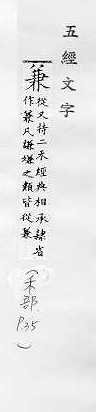 五經文字
兼從又持二禾經典相承隷省
作兼凡謙嫌之類皆從兼
(禾部
P.35)